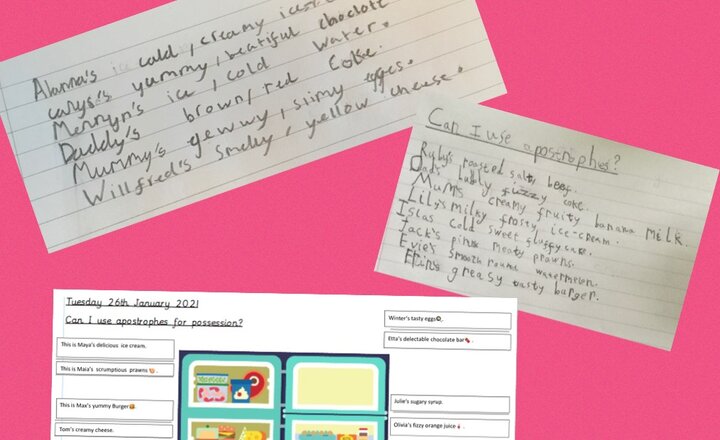 Alanna's ice cold, creamy ice-
carys's yummy, beatiful choclate
Merryn's ice, cold water.
Daddy's brown/red coke.
Mummy's gewwy, slimy egges.
Willfred's smelly, yellow cheese.
Can I use apostrophes?
Ruby's roasted salty beef.
Dad's bubbly fuzzy coke.
Mum's creamy fruity banana milk.
Lily's milky frosty ice-cream.
Islas cold sweet fluffy cake.
Jack's pink meaty prawns.
Evie's smooth round watermelon.
Erin's greasy tasty burger.
Tuesday 26th January 2021
Can I use apostrophes for possession?
This is Maya's delicious ice cream.
This is Maia's scrumptious prawns.
This is Max's yummy Burger
Tom's creamy cheese.
Winter's tasty eggs.
Etta's delectable chocolate bar.
Julie's sugary syrup.
Olivia's fizzy orange juice.